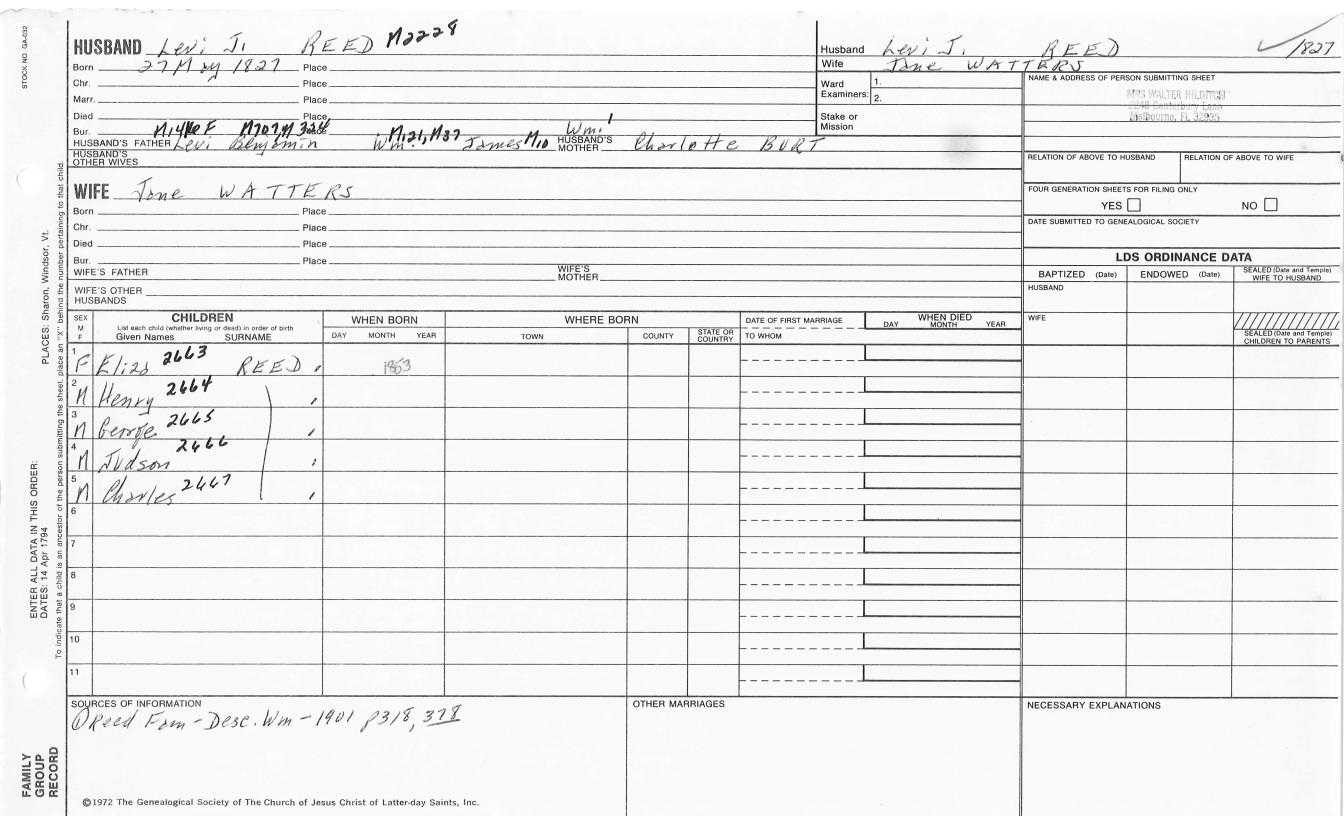 STOCK NO. GA-032
HUSBAND Levi J. REED M2228
Born 27 May 1827 Place
Chr. Place
Marr. Place
Died Place
Bur. Place
M707, M121, M37 M10 Wm.1
HUSBAND'S FATHER Levi Benjamin Wm. James HUSBAND'S MOTHER Charlotte BURT
HUSBAND'S OTHER WIVES
Husband Levi J. REED 1827
Wife Jane WATTERS
Ward Examiners: 1.
2.
Stake or Mission
NAME & ADDRESS OF PERSON SUBMITTING SHEET
MRS WALTER
Canterbury Lane
Melbourne, FL 32935
RELATION OF ABOVE TO HUSBAND RELATION OF ABOVE TO WIFE
FOUR GENERATION SHEETS FOR FILING ONLY
YES NO
DATE SUBMITTED TO GENEALOGICAL SOCIETY
WIFE Jane WATTERS
Born Place
Chr. Place
Died Place
Bur. Place
WIFE'S FATHER WIFE'S MOTHER
WIFE'S OTHER HUSBANDS
LDS ORDINANCE DATA
BAPTIZED (Date) ENDOWED (Date) SEALED (Date and Temple) WIFE TO HUSBAND
HUSBAND
WIFE
SEALED (Date and Temple) CHILDREN TO PARENTS
SEX M F
CHILDREN
List each child (whether living or dead) in order of birth
Given Names SURNAME
WHEN BORN
DAY MONTH YEAR
WHERE BORN
TOWN COUNTY STATE OR COUNTRY
DATE OF FIRST MARRIAGE
TO WHOM
WHEN DIED
DAY MONTH YEAR
1 F Eliza 2663 REED 1853
2 M Henry 2664
3 M George 2665
4 M Judson 2666
5 M Charles 2667
6
7
8
9
10
11
SOURCES OF INFORMATION
① Reed Fam - Desc. Wm - 1901 p318, 378
OTHER MARRIAGES
NECESSARY EXPLANATIONS
©1972 The Genealogical Society of The Church of Jesus Christ of Latter-day Saints, Inc.
FAMILY GROUP RECORD
ENTER ALL DATA IN THIS ORDER:
DATES: 14 Apr 1794
PLACES: Sharon, Windsor, Vt.
To indicate that a child is an ancestor of the person submitting the sheet, place an "X" behind the number pertaining to that child.